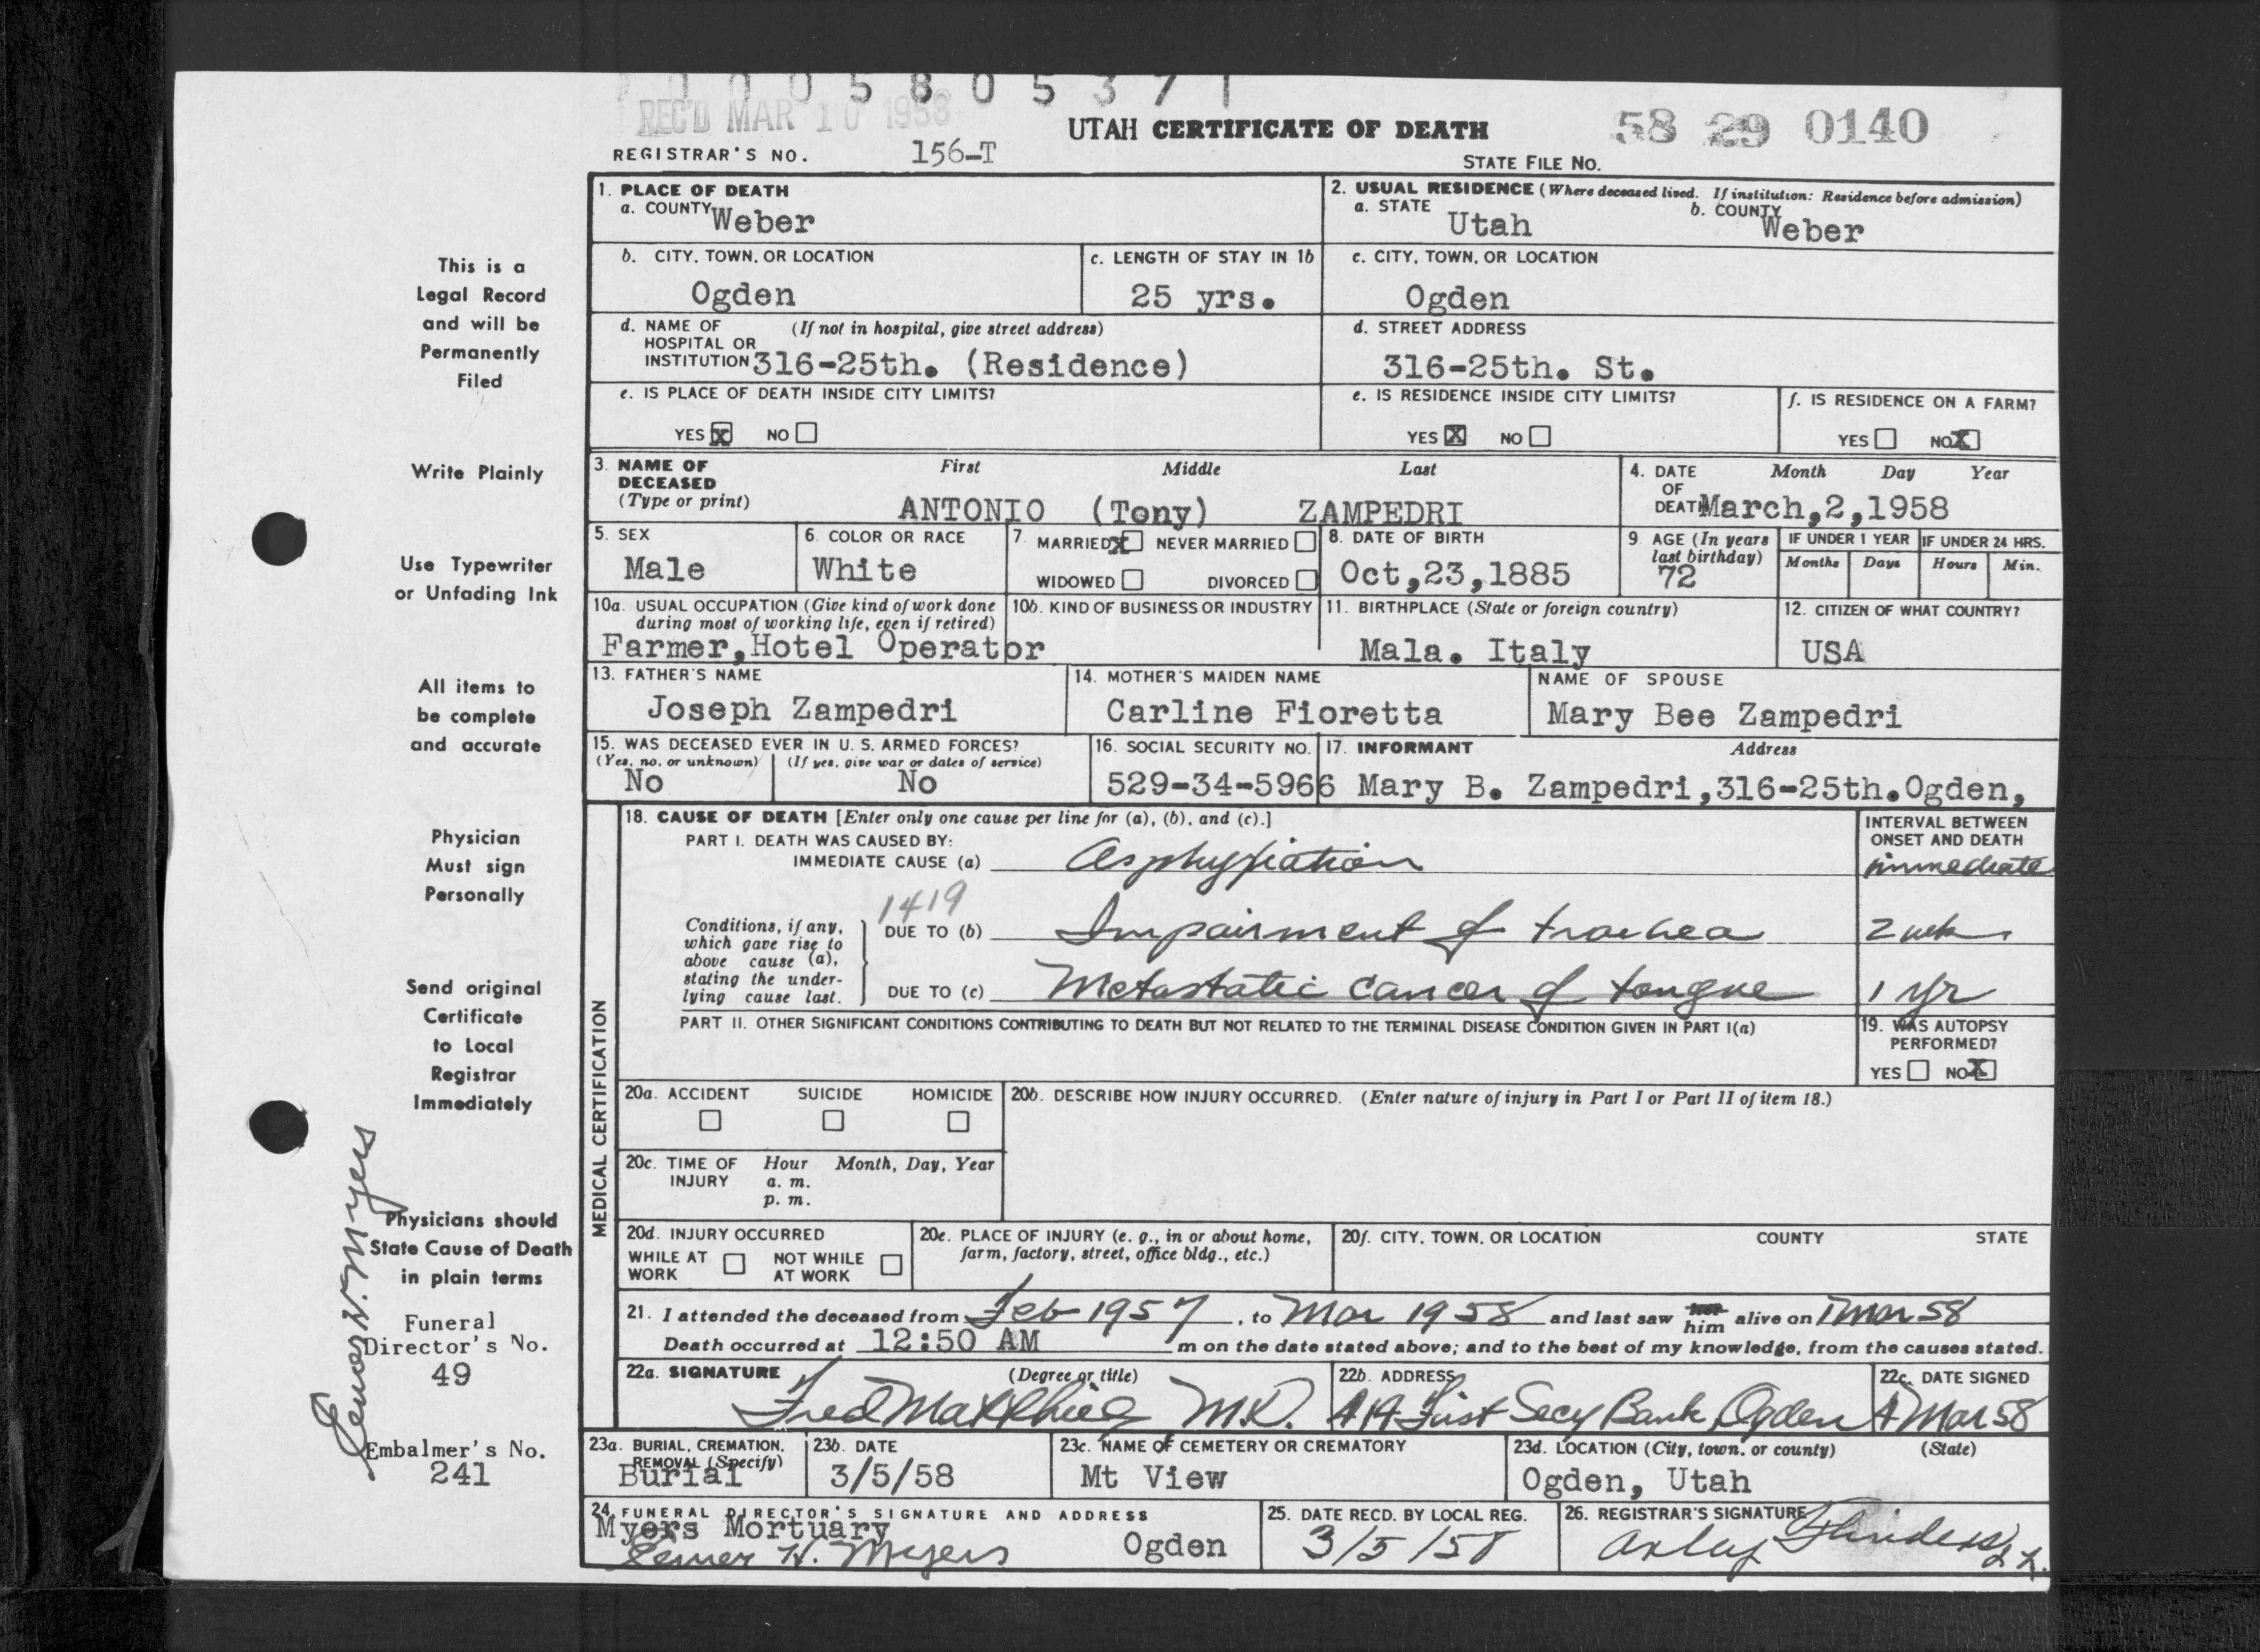 0 0 0 5 8 0 5 3 7 1
REC'D MAR 10 1958
UTAH CERTIFICATE OF DEATH
58 29 0140
REGISTRAR'S NO. 156-T
STATE FILE NO.
1. PLACE OF DEATH
a. COUNTY Weber
2. USUAL RESIDENCE (Where deceased lived. If institution: Residence before admission)
a. STATE Utah b. COUNTY Weber
b. CITY, TOWN, OR LOCATION Ogden
c. LENGTH OF STAY IN 1b 25 yrs.
c. CITY, TOWN, OR LOCATION Ogden
d. NAME OF HOSPITAL OR INSTITUTION (If not in hospital, give street address) 316-25th. (Residence)
d. STREET ADDRESS 316-25th. St.
e. IS PLACE OF DEATH INSIDE CITY LIMITS?
YES X NO
e. IS RESIDENCE INSIDE CITY LIMITS?
YES X NO
f. IS RESIDENCE ON A FARM?
YES NO X
3. NAME OF DECEASED (Type or print)
First Middle Last
ANTONIO (Tony) ZAMPEDRI
4. DATE OF DEATH Month Day Year
March,2,1958
5. SEX Male
6. COLOR OR RACE White
7. MARRIED X NEVER MARRIED
WIDOWED DIVORCED
8. DATE OF BIRTH Oct,23,1885
9. AGE (In years last birthday) 72
IF UNDER 1 YEAR Months Days
IF UNDER 24 HRS. Hours Min.
10a. USUAL OCCUPATION (Give kind of work done during most of working life, even if retired)
Farmer,Hotel Operator
10b. KIND OF BUSINESS OR INDUSTRY
11. BIRTHPLACE (State or foreign country)
Mala. Italy
12. CITIZEN OF WHAT COUNTRY?
USA
13. FATHER'S NAME
Joseph Zampedri
14. MOTHER'S MAIDEN NAME
Carline Fioretta
NAME OF SPOUSE
Mary Bee Zampedri
15. WAS DECEASED EVER IN U. S. ARMED FORCES?
(Yes, no, or unknown) (If yes, give war or dates of service)
No No
16. SOCIAL SECURITY NO.
529-34-5966
17. INFORMANT Address
Mary B. Zampedri,316-25th.Ogden,
MEDICAL CERTIFICATION
18. CAUSE OF DEATH [Enter only one cause per line for (a), (b), and (c).]
INTERVAL BETWEEN ONSET AND DEATH
PART I. DEATH WAS CAUSED BY:
IMMEDIATE CAUSE (a) Asphyxiation immediate
1419
Conditions, if any, which gave rise to above cause (a), stating the underlying cause last.
DUE TO (b) Impairment of trachea 2 wks
DUE TO (c) Metastatic cancer of tongue 1 yr
PART II. OTHER SIGNIFICANT CONDITIONS CONTRIBUTING TO DEATH BUT NOT RELATED TO THE TERMINAL DISEASE CONDITION GIVEN IN PART I(a)
19. WAS AUTOPSY PERFORMED?
YES NO X
20a. ACCIDENT SUICIDE HOMICIDE
20b. DESCRIBE HOW INJURY OCCURRED. (Enter nature of injury in Part I or Part II of item 18.)
20c. TIME OF INJURY Hour Month, Day, Year
a. m.
p. m.
20d. INJURY OCCURRED
WHILE AT WORK NOT WHILE AT WORK
20e. PLACE OF INJURY (e. g., in or about home, farm, factory, street, office bldg., etc.)
20f. CITY, TOWN, OR LOCATION COUNTY STATE
21. I attended the deceased from Feb 1957, to Mar 1958 and last saw her him alive on 1 Mar 58
Death occurred at 12:50 AM m on the date stated above; and to the best of my knowledge, from the causes stated.
22a. SIGNATURE (Degree or title)
Fred M.D.
22b. ADDRESS
First Secy Bank Ogden
22c. DATE SIGNED
4 Mar 58
23a. BURIAL, CREMATION, REMOVAL (Specify)
Burial
23b. DATE
3/5/58
23c. NAME OF CEMETERY OR CREMATORY
Mt View
23d. LOCATION (City, town, or county) (State)
Ogden, Utah
24. FUNERAL DIRECTOR'S SIGNATURE AND ADDRESS
Myers Mortuary
H. Myers Ogden
25. DATE RECD. BY LOCAL REG.
3/5/58
26. REGISTRAR'S SIGNATURE
This is a
Legal Record
and will be
Permanently
Filed
Write Plainly
Use Typewriter
or Unfading Ink
All items to
be complete
and accurate
Physician
Must sign
Personally
Send original
Certificate
to Local
Registrar
Immediately
Physicians should
State Cause of Death
in plain terms
Funeral
Director's No.
49
Embalmer's No.
241
Myers